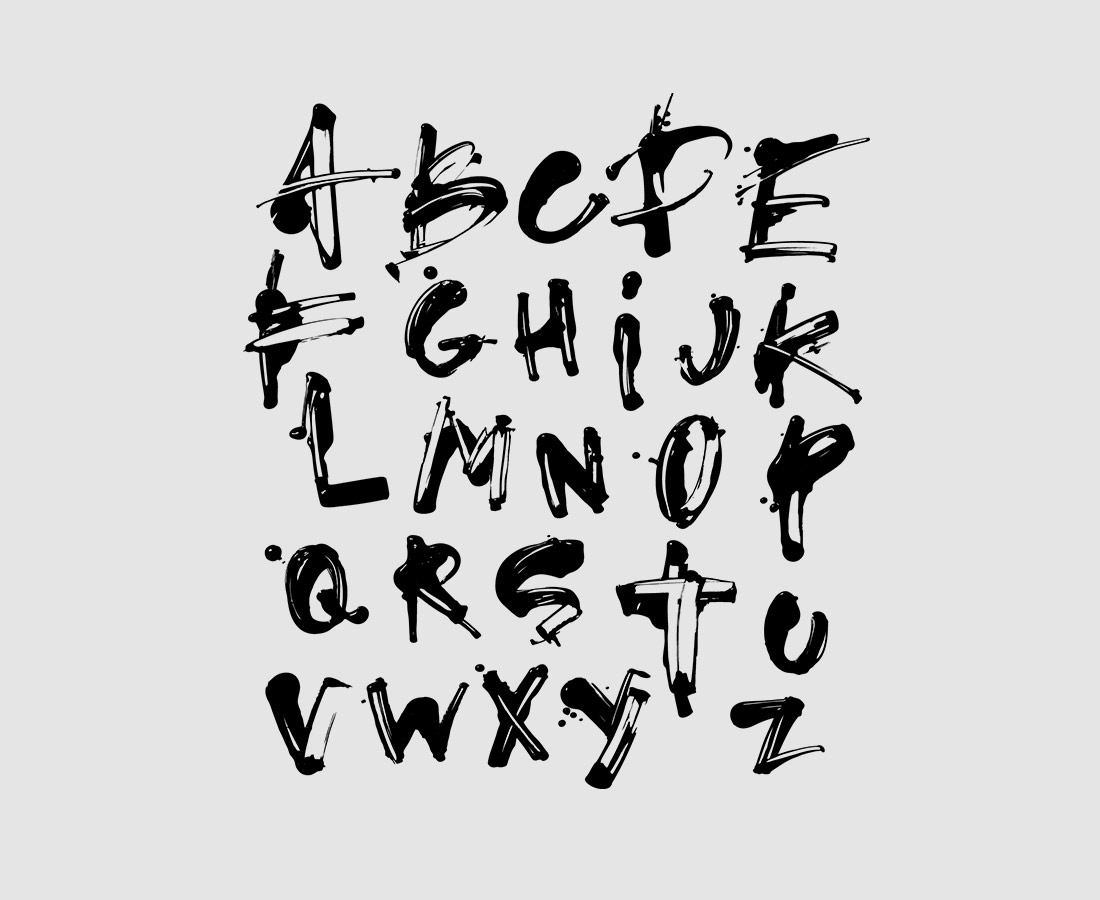 A B C D E
F G H i J K
L M N O P
Q R S T U
V W X Y Z